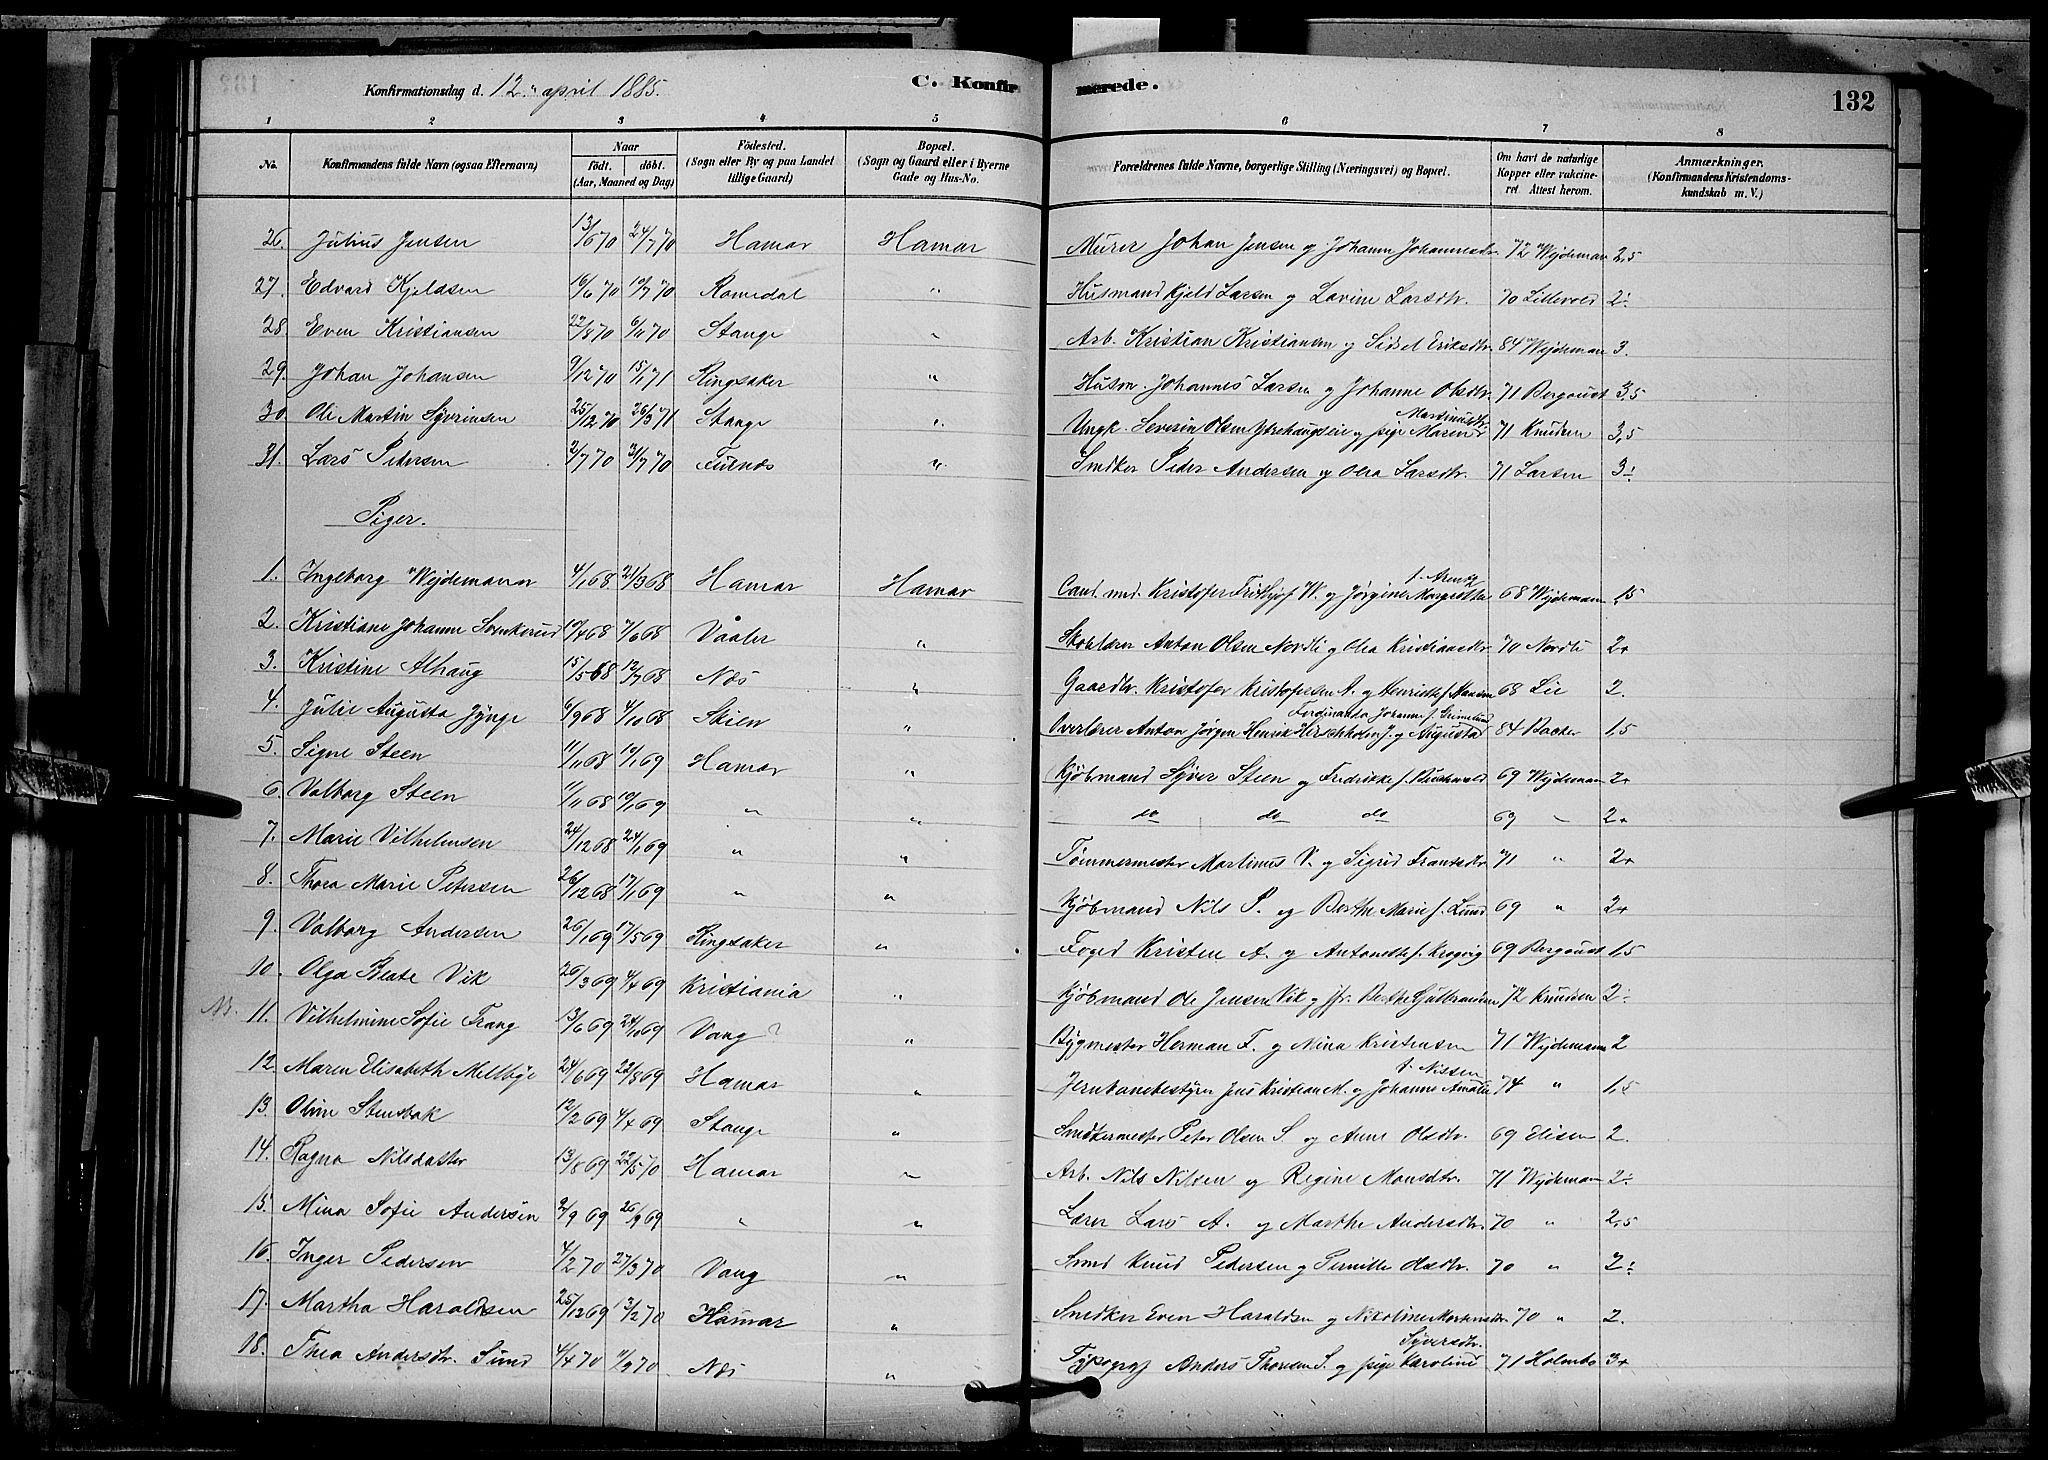 Konfirmationsdag d. 12. april 1885.
C. Konfirmerede.
132
1 2 3 4 5 6 7 8
No. Konfirmandens fulde Navn (ogsaa Efternavn) Naar født. døbt. (Aar, Maaned og Dag) Födested. (Sogn eller By og paa Landet tillige Gaard) Bopæl. (Sogn og Gaard eller i Byerne Gade og Hus-No. Forældrenes fulde Navne, borgerlige Stilling (Næringsvei) og Bopæl. Om havt de naturlige Kopper eller vakcineret. Attest herom. Anmærkninger. (Konfirmandens Kristendomskundskab m. V.)
26. Julius Jensen 13/6 70 24/7 70 Hamar Hamar Murer Johan Jensen og Johanne Johannesdtr. 72 Wejdeman 2,5
27. Edvard Kjeldsen 16/6 70 10/7 70 Romedal " Husmand Kjeld Larsen og Lovine Larsdtr. 70 Lillevold 2÷
28. Even Kristiansen 6/11 70 Stange " Arb. Kristian Kristiansen og Sidsel Eriksdtr. 84 Wejdeman 3.
29. Johan Johansen 9/12 70 15/1 71 Ringsaker " Husm. Johannes Larsen og Johanne Olsdtr. 71 Bergoust 3,5
30. Ole Martin Syverinsen 25/12 70 26/3 71 Stange " Ungk. Severin Olsen Ytrehaugseie og pige Maren Martinusdtr. 71 Knudsen 3,5
31. Lars Pedersen 2/7 70 31/7 70 Furnes " Snedker Peder Andersen og Olea Larsdtr. 71 Larsen 3÷
Piger.
1. Ingeborg Wejdemann 4/1 68 21/3 68 Hamar Hamar Cand. med. Kristofer Frithjof W. og Jørgine Margrethe f. Arentz 68 Wejdemann 1,5
2. Kristiane Johanne Svenkerud 10/4 68 7/6 68 Våaler " Skolelærer Anton Olsen Nordli og Olea Kristiansdtr. 70 Nordli 2+
3. Kristine Alhaug 15/5 68 12/7 68 Næs " Gaardbr. Kristofer Kristofersen A. og Henriette f. Hansen 68 Lie 2.
4. Julie Augusta Jynge 6/9 68 4/10 68 Skien " Overlærer Anton Jørgen Henrik Hirschholm J. og Augusta Ferdinanda Johanne f. 84 Backer 1,5
5. Signe Steen 11/11 68 10/1 69 Hamar " Kjøbmand Syver Steen og Fredrikke f. Buchwald 69 Wejdeman 2+
6. Valborg Steen 11/11 68 10/1 69 " " do do do 69 " 2+
7. Marie Vilhelmsen 24/12 68 24/1 69 " " Tømmermester Martinus V. og Sigrid Frantsdtr. 71 " 2+
8. Thora Marie Petersen 26/12 68 17/1 69 " " Kjøbmand Nils P. og Berthe Marie f. Lund 69 " 2+
9. Valborg Andersen 26/1 69 17/5 69 Ringsaker " Foged Kristen A. og Antonette f. Krogvig 69 Bergoust 1,5
10. Olga Beate Vik 26/3 69 4/4 69 Kristiania " Kjøbmand Ole Jensen Vik og jfr. Berthe Guttormsen 72 Knudsen 2÷
NB. 11. Vilhelmine Sofie Frang 13/6 69 24/10 69 Vang ? " Bygmester Herman F. og Mina Kristensen 71 Wejdemann 2
12. Maren Elisabeth Mellbye 24/6 69 22/8 69 Hamar " Jernbanebestyrer Jens Kristian M. og Johanne Amalie f. Nissen 74 " 1,5
13. Oline Stensbak 12/2 69 4/4 69 Stange " Snedkermester Peter Olsen S. og Anne Olsdtr. 69 Elisen 2.
14. Ragna Nilsdatter 13/8 69 22/5 70 Hamar " Arb. Nils Nilsen og Regine Monsdtr. 71 Wejdeman 2÷
15. Mina Sofie Andersen 2/9 69 26/9 69 " " Lærer Lars A. og Marthe Andersdtr. 70 " 2,5
16. Inger Pedersen 4/2 70 27/3 70 Vang " Smed Knud Pedersen og Pernille Olsdtr. 70 " 2÷
17. Martha Haraldsen 25/12 69 13/2 70 Hamar " Snedker Even Haraldsen og Nikoline Mortensdtr. 70 " 2.
18. Thea Andersdtr. Sund 4/4 70 11/9 70 Næs " Typograf Anders Thorsen S. og pige Karoline Syversdtr. 71 Holmbo 3+